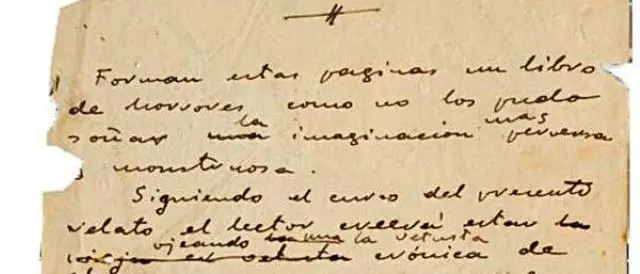 Forman estas paginas un libro
de horrores como no los pudo
soñar la imaginación más perversa
y monstruosa.
Siguiendo el curso del presente
relato el lector creerá estar
ojeando la vetusta
crónica de